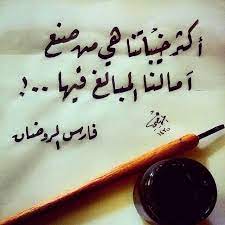 أكثر خيباتنا هي من صنع
آمالنا المبالغ فيها ..!
فارس الروضان